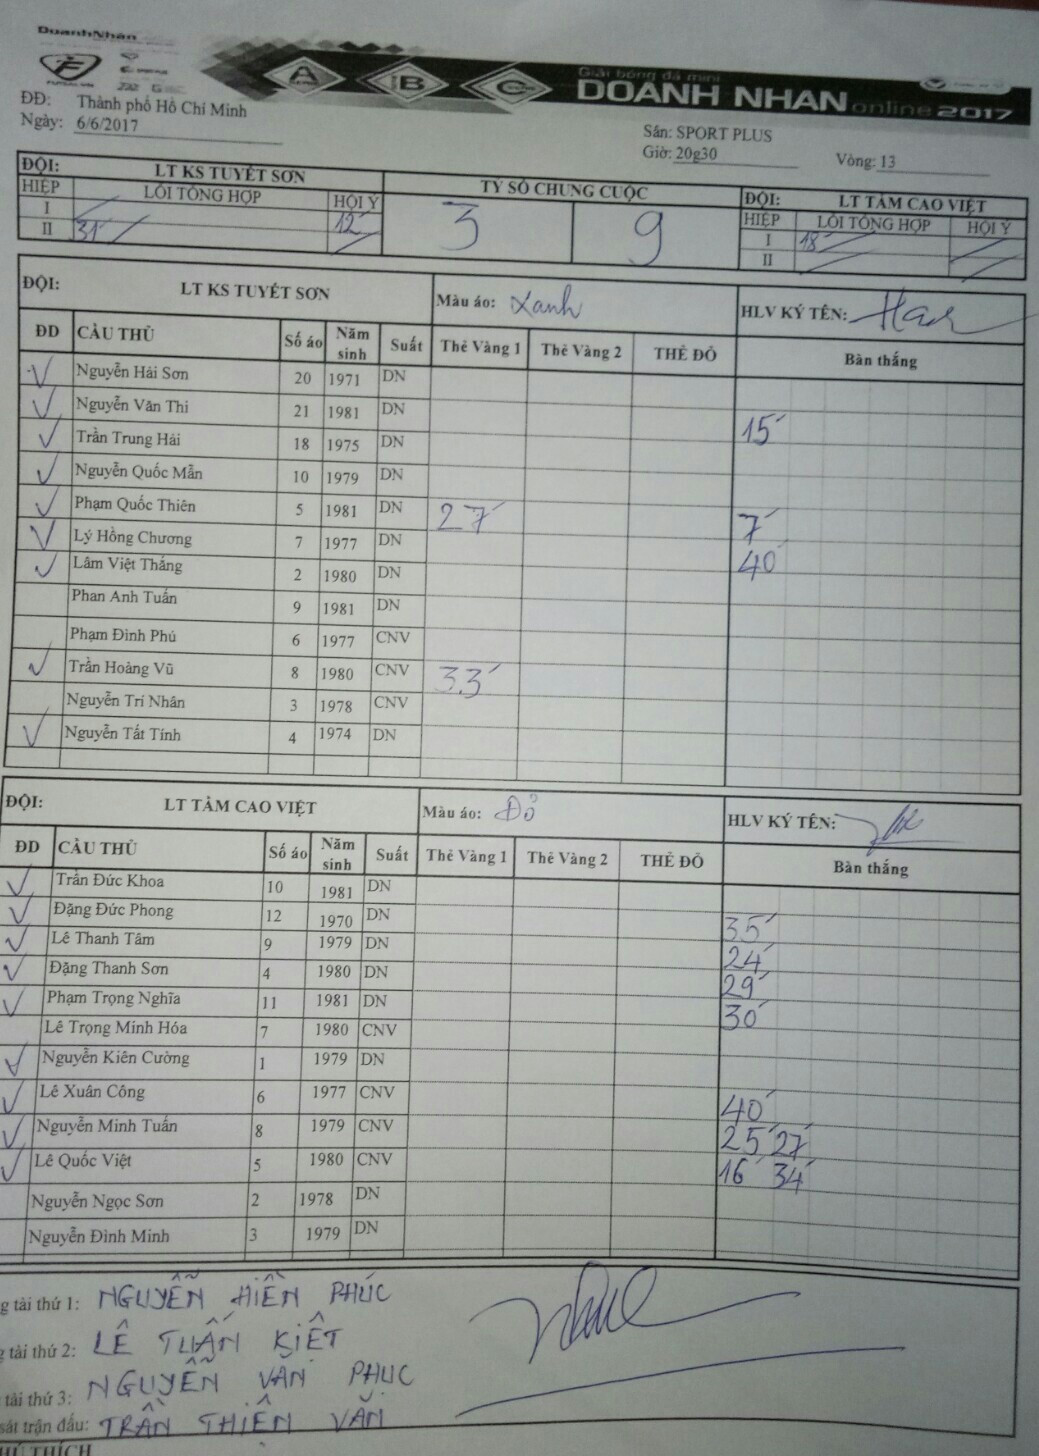 DoanhNhan
A B C
Giải bóng đá mini
DOANH NHAN online 2017
ĐĐ: Thành phố Hồ Chí Minh
Ngày: 6/6/2017
Sân: SPORT PLUS
Giờ: 20g30 Vòng: 13
ĐỘI: LT KS TUYẾT SƠN TỶ SỐ CHUNG CUỘC ĐỘI: LT TẦM CAO VIỆT
HIỆP LỖI TỔNG HỢP HỘI Ý 3 9 HIỆP LỖI TỔNG HỢP HỘI Ý
I 12' I 18'
II 31' II
ĐỘI: LT KS TUYẾT SƠN Màu áo: Xanh HLV KÝ TÊN:
ĐD CẦU THỦ Số áo Năm sinh Suất Thẻ Vàng 1 Thẻ Vàng 2 THẺ ĐỎ Bàn thắng
Nguyễn Hải Sơn 20 1971 DN
Nguyễn Văn Thi 21 1981 DN
Trần Trung Hải 18 1975 DN 15'
Nguyễn Quốc Mẫn 10 1979 DN
Phạm Quốc Thiên 5 1981 DN 27' 7'
Lý Hồng Chương 7 1977 DN 40'
Lâm Việt Thắng 2 1980 DN
Phan Anh Tuấn 9 1981 DN
Phạm Đình Phú 6 1977 CNV
Trần Hoàng Vũ 8 1980 CNV 33'
Nguyễn Trí Nhân 3 1978 CNV
Nguyễn Tất Tính 4 1974 DN
ĐỘI: LT TẦM CAO VIỆT Màu áo: Đỏ HLV KÝ TÊN:
ĐD CẦU THỦ Số áo Năm sinh Suất Thẻ Vàng 1 Thẻ Vàng 2 THẺ ĐỎ Bàn thắng
Trần Đức Khoa 10 1981 DN
Đặng Đức Phong 12 1970 DN 35'
Lê Thanh Tâm 9 1979 DN 24'
Đặng Thanh Sơn 4 1980 DN 29'
Phạm Trọng Nghĩa 11 1981 DN 30'
Lê Trọng Minh Hóa 7 1980 CNV
Nguyễn Kiên Cường 1 1979 DN
Lê Xuân Công 6 1977 CNV 40'
Nguyễn Minh Tuấn 8 1979 CNV 25' 27'
Lê Quốc Việt 5 1980 CNV 16' 34'
Nguyễn Ngọc Sơn 2 1978 DN
Nguyễn Đình Minh 3 1979 DN
g tài thứ 1: NGUYỄN HIỀN PHÚC
g tài thứ 2: LÊ TUẤN KIỆT
tài thứ 3: NGUYỄN VĂN PHUC
sát trận đấu: TRẦN THIỆN VĂN
HÚ THÍCH